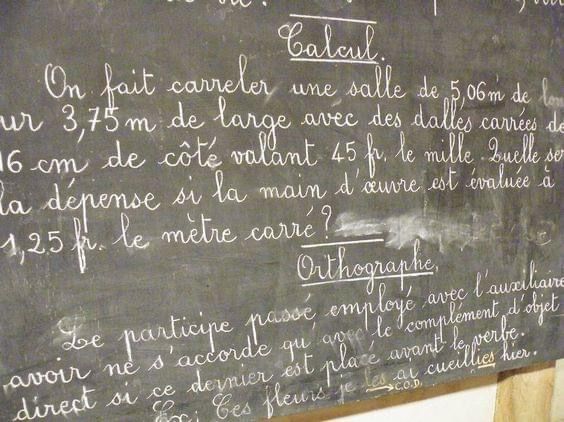 Calcul.
On fait carreler une salle de 5,06m de
ur 3,75 m de large avec des dalles carrées de
16 cm de côté valant 45 fr. le mille. Quelle ser
la dépense si la main d'œuvre est évaluée à
1,25 fr. le mètre carré ?
Orthographe.
Le participe passé employé avec l'auxiliaire
avoir ne s'accorde qu'avec le complément d'objet
direct si ce dernier est placé avant le verbe.
Ex: Ces fleurs je les ai cueillies hier.
C.O.D.